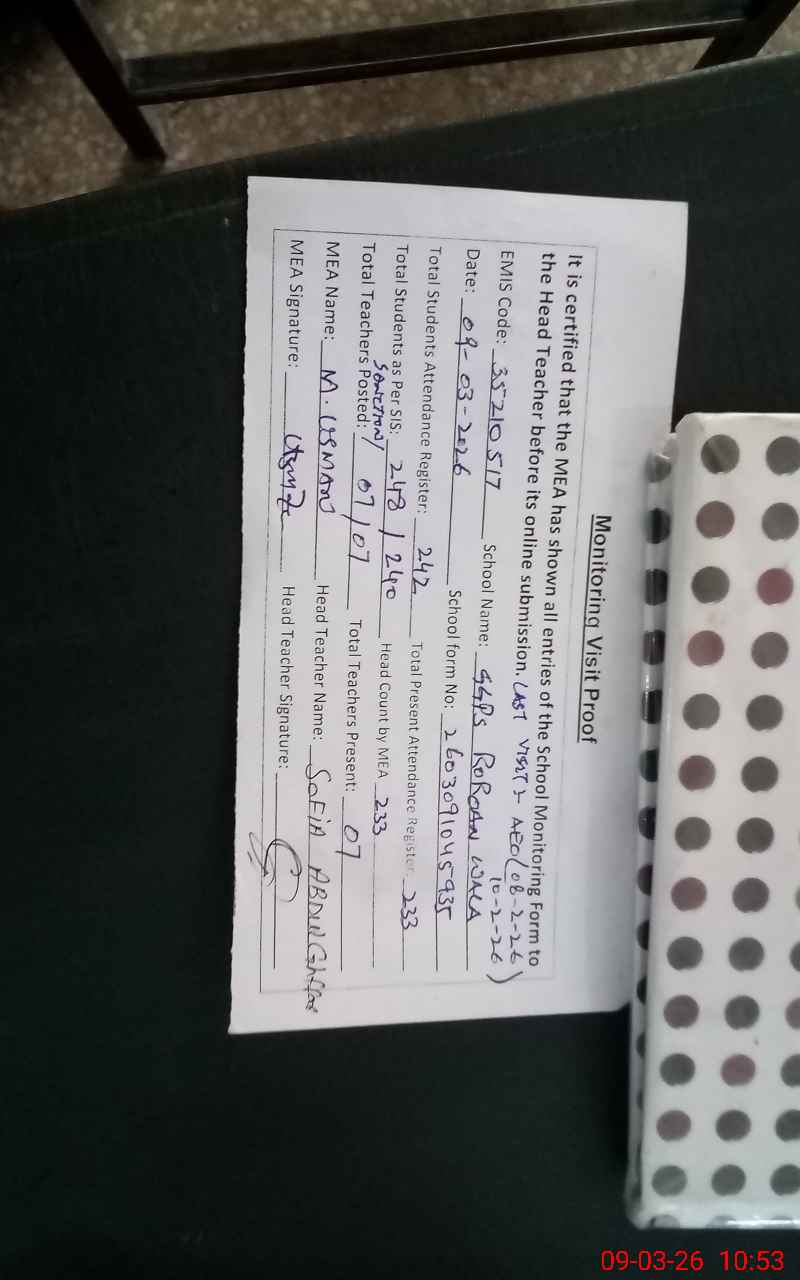 Monitoring Visit Proof
It is certified that the MEA has shown all entries of the School Monitoring Form to
the Head Teacher before its online submission. LAST VISIT:- AEO (08-2-26
10-2-26)
EMIS Code: 35210517 School Name: GGPS RORAN WALA
Date: 09-03-2026 School form No: 2603091045935
Total Students Attendance Register: 242 Total Present Attendance Register: 233
Total Students as Per SIS: 248 / 240 Head Count by MEA 233
SANCTION/
Total Teachers Posted: 07/07 Total Teachers Present: 07
MEA Name: M. USMAN Head Teacher Name: SOFIA ABDUL Ghaffar
MEA Signature: Head Teacher Signature:
09-03-26 10:53